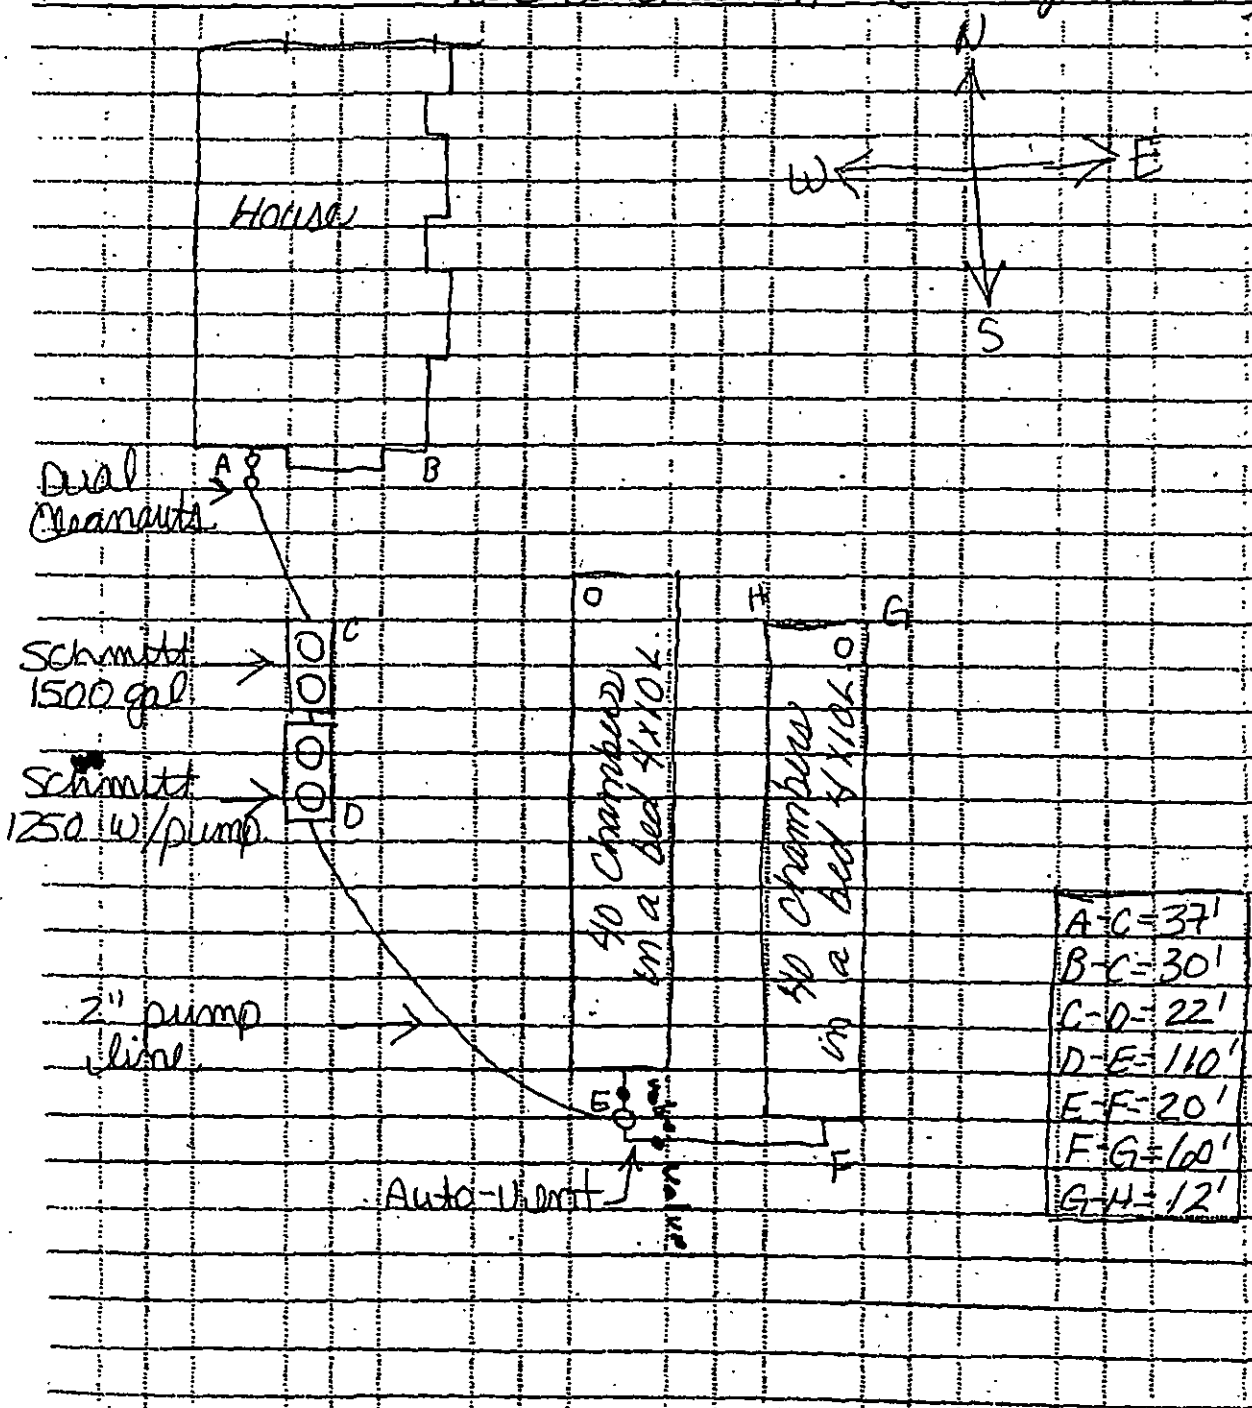 N
W
E
S
House
A
B
Dual
Cleanouts
C
Schmitt
1500 gal
Schmitt
1250 w/pump
D
40 Chambers
in a bed 4x10L
H
G
40 Chambers
in a bed 4x10L
2" pump
line
E
F
Auto-Vent
Valve
A-C=37'
B-C=30'
C-D=22'
D-E=110'
E-F=20'
F-G=60'
G-H=12'